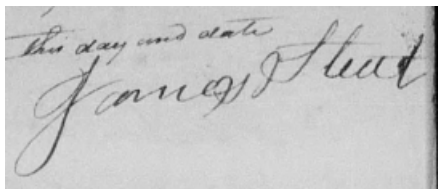 this day and date
James Stuut